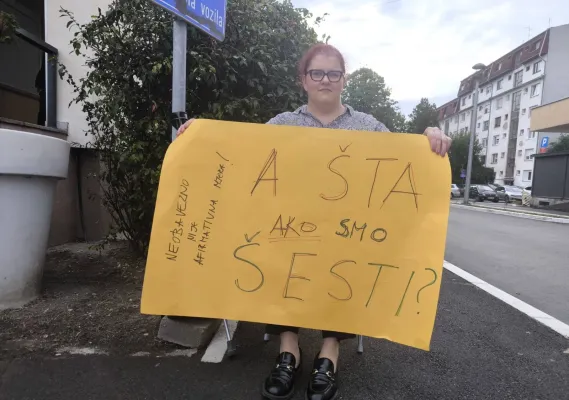 na vozila
NEOBAVEZNO
NIJE
AFIRMATIVNA MJERA!
A ŠTA
AKO SMO
ŠESTI?